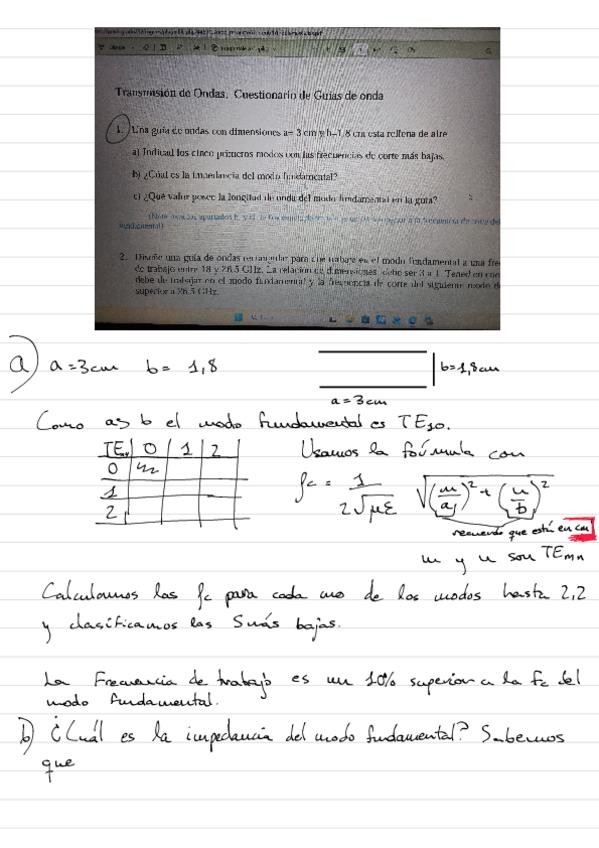 Transmisión de Ondas. Cuestionario de Guías de onda
1. Una guía de ondas con dimensiones a= 3 cm y b=1,8 cm esta rellena de aire
a) Indicad los cinco primeros modos con las frecuencias de corte más bajas.
b) ¿Cúal es la impedancia del modo fundamental?
c) ¿Qué valor posee la longitud de onda del modo fundamental en la guía?
fundamental)
2. Diseñe una guía de ondas rectangular para que trabaje en el modo fundamental a una fre
de trabajo entre 18 y 26.5 GHz. La relación de dimensiones debe ser 3 a 1. Tened en
debe de trabajar en el modo fundamental y la frecuencia de corte del siguiente modo
superior a 26.5 GHz.
a) a=3cm b= 1,8
b=1,8cm
a=3cm
Como a>b el modo fundamental es TE10.
TEmn 0 1 2
0
1
2
Usamos la fórmula con
fc = 1 / 2√με √(m/a)² + (n/b)²
recuerdo que están en cm
m y n son TEmn
Calculamos las fc para cada uno de los modos hasta 2,2
y clasificamos las 5 más bajas.
La Frecuencia de trabajo es un 10% superior a la fc del
modo fundamental.
b) ¿Cuál es la impedancia del modo fundamental? Sabemos
que